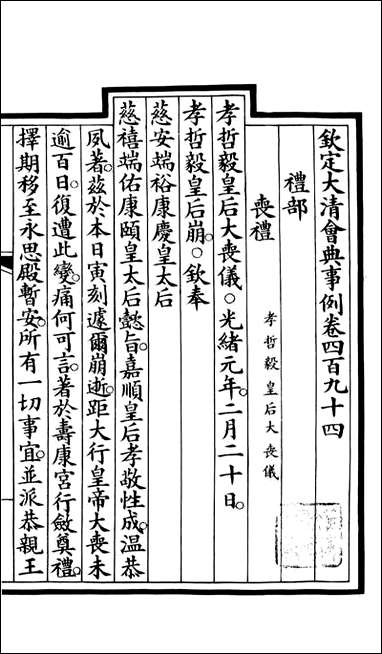 欽定大清會典事例卷四百九十四
禮部
喪禮 孝哲毅皇后大喪儀
孝哲毅皇后大喪儀○光緒元年二月二十日。
孝哲毅皇后崩。○欽奉
慈安端裕康慶皇太后
慈禧端佑康頤皇太后懿旨。嘉順皇后孝敬性成。溫恭
夙著。茲於本日寅刻遽爾崩逝。距大行皇帝大喪未
逾百日。復遭此變。痛何可言。著於壽康宮行斂奠禮。
擇期移至永思殿暫安。所有一切事宜。並派恭親王